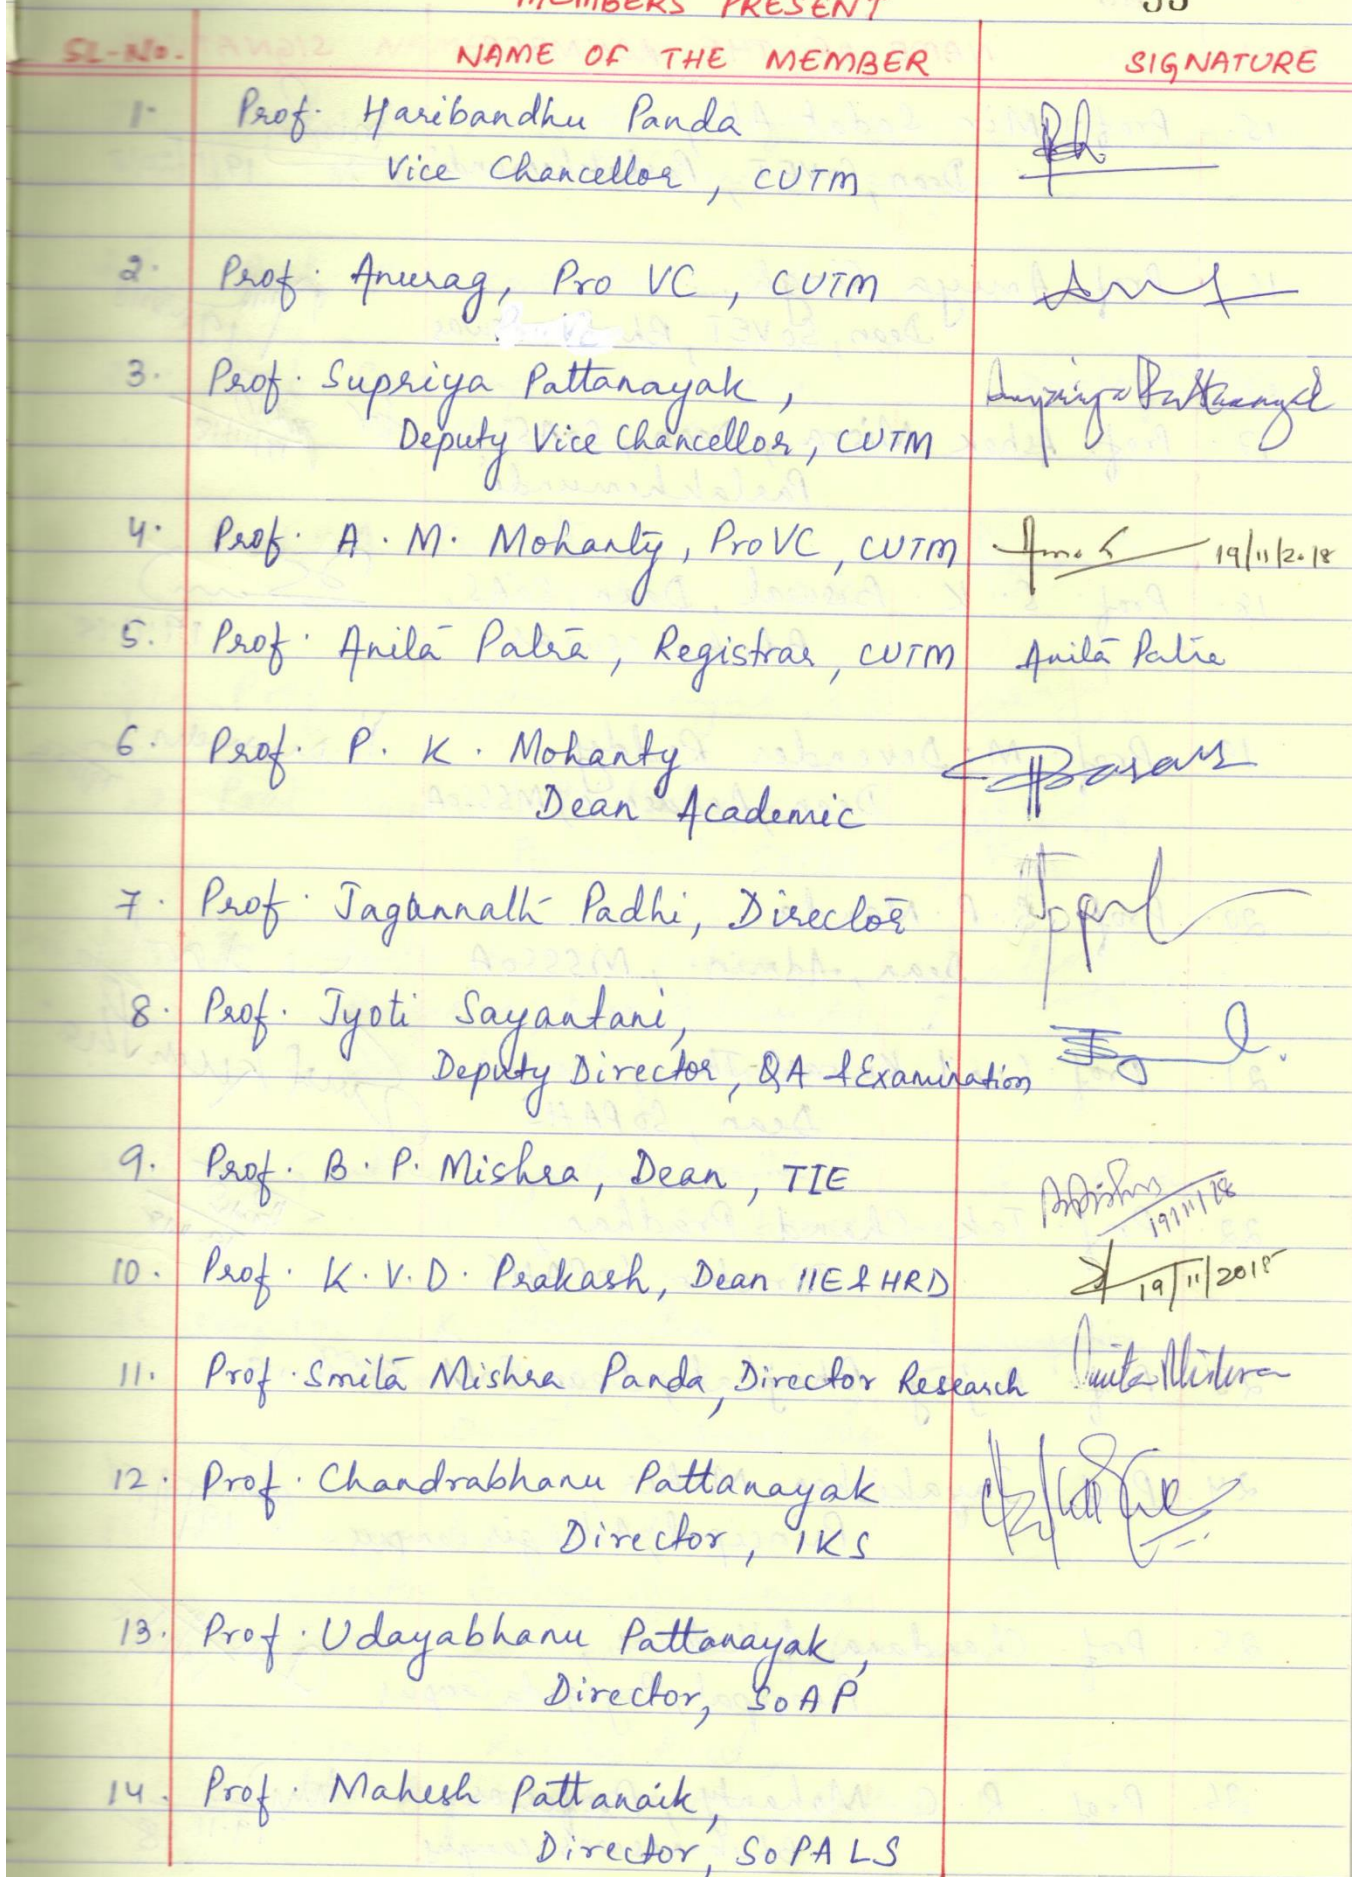 MEMBERS PRESENT
SL-No. NAME OF THE MEMBER SIGNATURE
1. Prof. Haribandhu Panda
Vice Chancellor, CUTM
2. Prof. Anurag, Pro VC, CUTM
3. Prof. Supriya Pattanayak, Supriya Pattanayak
Deputy Vice Chancellor, CUTM
4. Prof. A. M. Mohanty, ProVC, CUTM 19/11/2018
5. Prof. Anita Patra, Registrar, CUTM Anita Patra
6. Prof. P. K. Mohanty
Dean Academic
7. Prof. Jagannath Padhi, Director
8. Prof. Jyoti Sayantani,
Deputy Director, QA & Examination
9. Prof. B. P. Mishra, Dean, TIE
19/11/18
10. Prof. K. V. D. Prakash, Dean IIE & HRD 19/11/2018
11. Prof. Smita Mishra Panda, Director Research Smita Mishra
12. Prof. Chandrabhanu Pattanayak
Director, IKS
13. Prof. Udayabhanu Pattanayak,
Director, SoAP
14. Prof. Mahesh Pattanaik,
Director, SoPALS